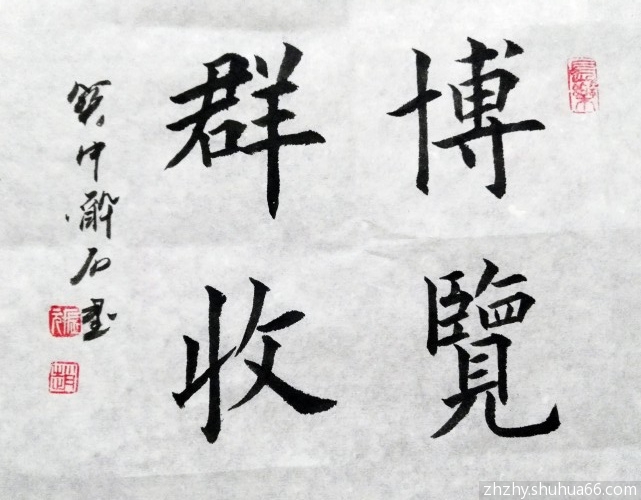 博覽
群收
中醉石書
zhzhy.shuhua66.com